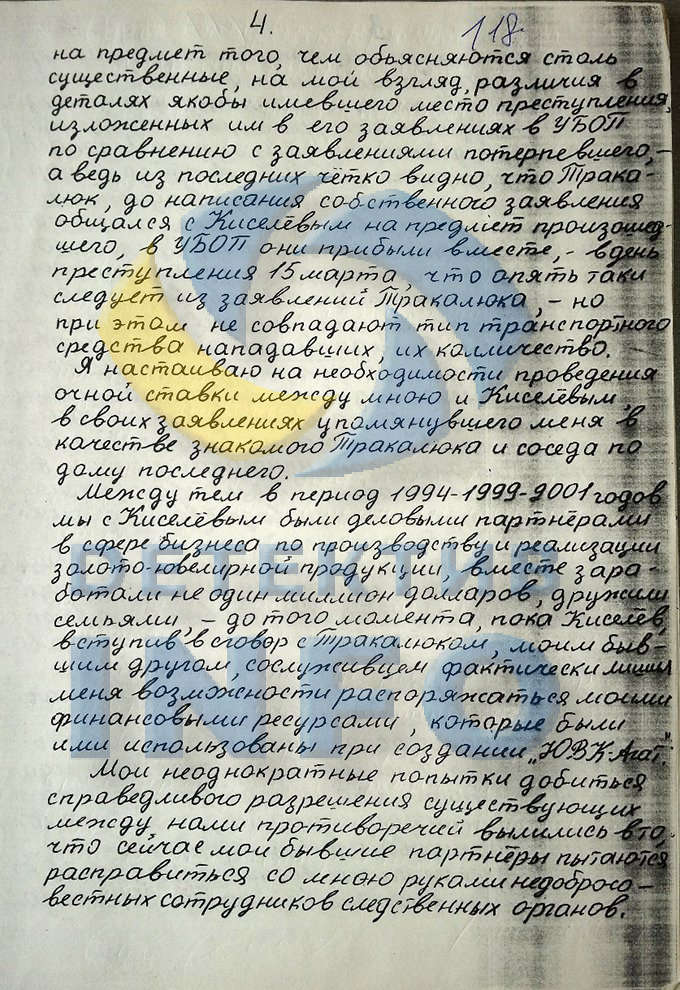 4.
118
на предмет того, чем обьясняются столь
существенные, на мой взгляд, различия в
деталях якобы имевшего место преступления,
изложенных им в его заявлениях в УБОП
по сравнению с заявлениями потерпевшего,-
а ведь из последних чётко видно, что Трака-
люк, до написания собственного заявления
общался с Киселёвым на предмет произошед-
шего, в УБОП они прибыли вместе,- в день
преступления 15 марта, что опять таки
следует из заявлений Тракалюка,- но
при этом не совпадают тип транспортного
средства нападавших, их колличество.
Я настаиваю на необходимости проведения
очной ставки между мною и Киселёвым,
в своих заявлениях упомянувшего меня в
качестве знакомого Тракалюка и соседа по
дому последнего.
Между тем в период 1994-1999-2001 годов
мы с Киселёвым были деловыми партнёрами
в сфере бизнеса по производству и реализации
золото-ювелирной продукции, вместе зара-
ботали не один миллион долларов, дружили
семьями,- до того момента, пока Киселёв,
вступив в сговор с Тракалюком, моим быв-
шим другом, сослуживцем фактически лишил
меня возможности распоряжаться моими
финансовыми ресурсами, которые были
ими использованы при создании „ЮВК-Агат."
Мои неоднократные попытки добиться
справедливого разрешения существующих
между нами противоречий вылились в то,
что сейчас мои бывшие партнёры пытаются
расправиться со мною руками недоброcо-
вестных сотрудников следственных органов.
DETEКТИВ
INFO